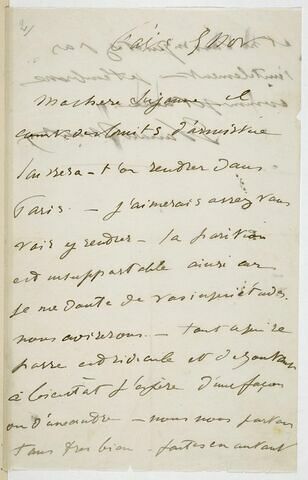 5 Nov
Ma chère Suzanne il
court des bruits d'armistice
laissera-t-on rentrer dans
Paris. — J'aimerais assez vous
voir y rentrer — la position
est insupportable ainsi car
je me doute de vos inquiétudes.
nous aviserons — tout ce qui se
passe est ridicule et dégoutant
à l'excès j'espère d'une façon
ou d'une autre — nous nous portons
tous très bien — faites en autant